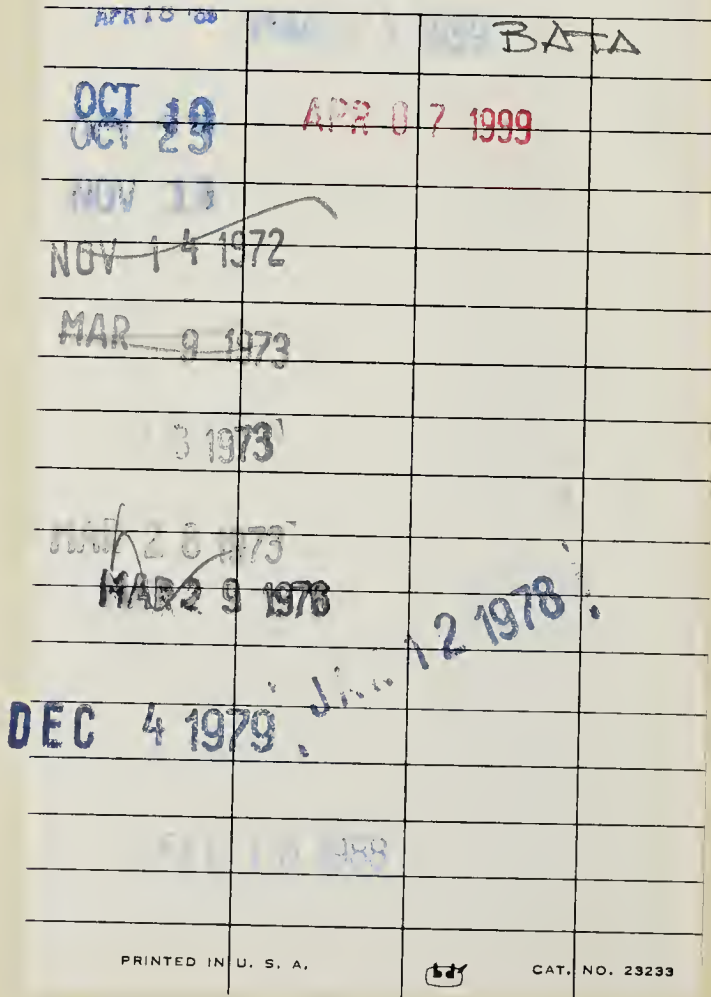 APR 18 BATA
OCT 19 APR 07 1999
OCT 23
NOV 13
NOV 14 1972
MAR 9 1973
3 1973
MAR 28 1973
MAR 29 1976
12 1978
DEC 4 1979
1988
PRINTED IN U. S. A. bd CAT. NO. 23233